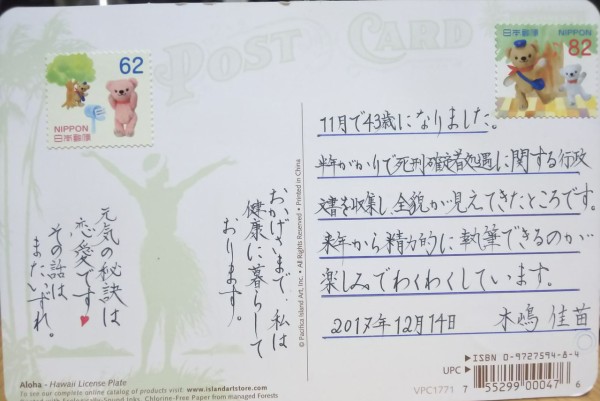 POST CARD
62
NIPPON
日本郵便
日本郵便
NIPPON
82
11月で43歳になりました。
半年がかりで死刑確定者処遇に関する行政
文書を収集し、全貌が見えてきたところです。
来年から精力的に執筆できるのが
楽しみでわくわくしています。
2017年12月14日 木嶋佳苗
おかげさまで、私は
健康に暮らして
おります。
元気の秘訣は
恋愛です♥
その話は
またいずれ。
© Pacifica Island Art, Inc. • All Rights Reserved • Printed in China
Aloha - Hawaii License Plate
To see our complete online catalog of products visit: www.islandartstore.com
Chlorine-Free Paper from managed Forests
VPC1771
ISBN 0-9727594-8-4
UPC
7 55299 00047 6